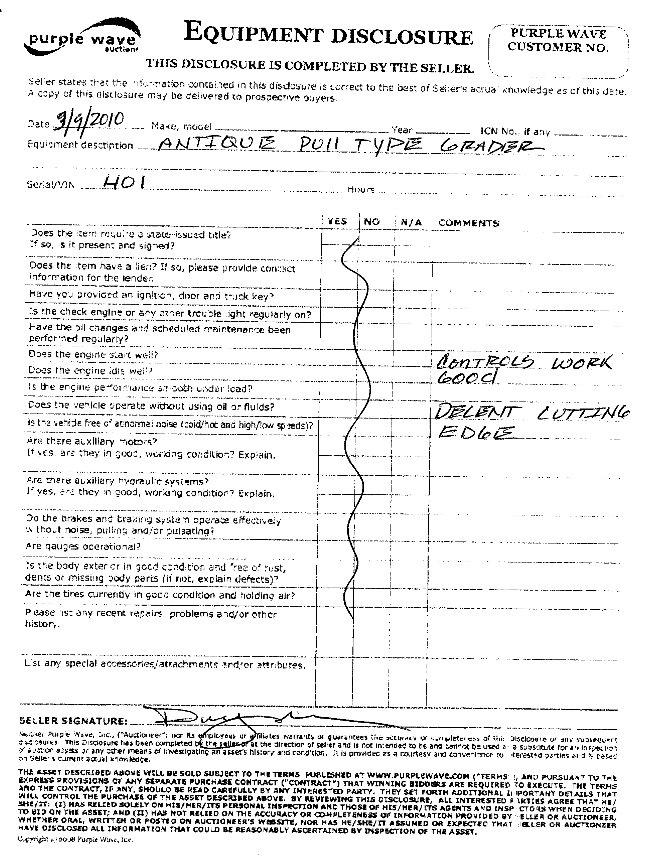 purple wave
auction
EQUIPMENT DISCLOSURE
PURPLE WAVE
CUSTOMER NO.
THIS DISCLOSURE IS COMPLETED BY THE SELLER.
Seller states that the information contained in this disclosure is correct to the best of Seller's actual knowledge as of this date.
A copy of this disclosure may be delivered to prospective buyers.
Date 3/9/2010 Make, model Year ICN No., if any
Equipment description ANTIQUE PUll TYPE GRADER
Serial/VIN 401 Hours
YES NO N/A COMMENTS
Does the item require a state-issued title?
If so, is it present and signed?
Does the item have a lien? If so, please provide contact
information for the lender.
Have you provided an ignition, door and truck key?
Is the check engine or any other trouble light regularly on?
Have the oil changes and scheduled maintenance been
performed regularly?
Does the engine start well?
CONTROLS WORK
Does the engine idle well?
GOOd
Is the engine performance smooth under load?
Does the vehicle operate without using oil or fluids?
DECENT CUTTING
Is the vehicle free of abnormal noise (cold/hot and high/low speeds)?
EDGE
Are there auxiliary motors?
If yes, are they in good, working condition? Explain.
Are there auxiliary hydraulic systems?
If yes, are they in good, working condition? Explain.
Do the brakes and braking system operate effectively
without noise, pulling and/or pulsating?
Are gauges operational?
Is the body exterior in good condition and free of rust,
dents or missing body parts (if not, explain defects)?
Are the tires currently in good condition and holding air?
Please list any recent repairs, problems and/or other
history.
List any special accessories/attachments and/or attributes.
SELLER SIGNATURE:
Neither Purple Wave, Inc., ("Auctioneer") nor its employees or affiliates warrants or guarantees the accuracy or completeness of this Disclosure or any subsequent
disclosures. This Disclosure has been completed by the seller or at the direction of seller and is not intended to be and cannot be used as a substitute for an inspection
of auction assets or any other means of investigating an asset's history and condition. It is provided as a courtesy and convenience to interested parties and is based
on Seller's current actual knowledge.
THE ASSET DESCRIBED ABOVE WILL BE SOLD SUBJECT TO THE TERMS PUBLISHED AT WWW.PURPLEWAVE.COM ("TERMS"), AND PURSUANT TO THE
EXPRESS PROVISIONS OF ANY SEPARATE PURCHASE CONTRACT ("CONTRACT") THAT WINNING BIDDERS ARE REQUIRED TO EXECUTE. THE TERMS
AND THE CONTRACT, IF ANY, SHOULD BE READ CAREFULLY BY ANY INTERESTED PARTY. THEY SET FORTH ADDITIONAL IMPORTANT DETAILS THAT
WILL CONTROL THE PURCHASE OF THE ASSET DESCRIBED ABOVE. BY REVIEWING THIS DISCLOSURE, ALL INTERESTED PARTIES AGREE THAT HE/
SHE/IT: (I) HAS RELIED SOLELY ON HIS/HER/ITS PERSONAL INSPECTION AND THOSE OF HIS/HER/ITS AGENTS AND INSPECTORS WHEN DECIDING
TO BID ON THE ASSET; AND (II) HAS NOT RELIED ON THE ACCURACY OR COMPLETENESS OF INFORMATION PROVIDED BY SELLER OR AUCTIONEER,
WHETHER ORAL, WRITTEN OR POSTED ON AUCTIONEER'S WEBSITE, NOR HAS HE/SHE/IT ASSUMED OR EXPECTED THAT SELLER OR AUCTIONEER
HAVE DISCLOSED ALL INFORMATION THAT COULD BE REASONABLY ASCERTAINED BY INSPECTION OF THE ASSET.
Copyright 2008 Purple Wave, Inc.